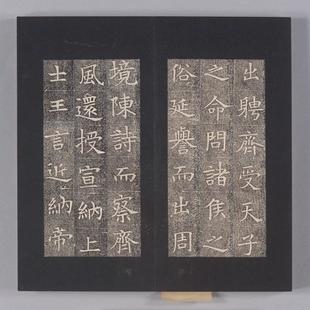 出聘齊受天子
之命問諸侯之
俗延譽而出周
境陳詩而察齊
風還授宣納上
士王言近納帝